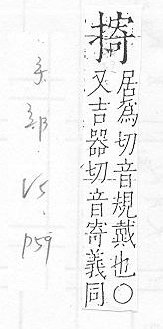 掎
居爲切音規戴也○
又吉器切音寄義同
手部.V5.
P59